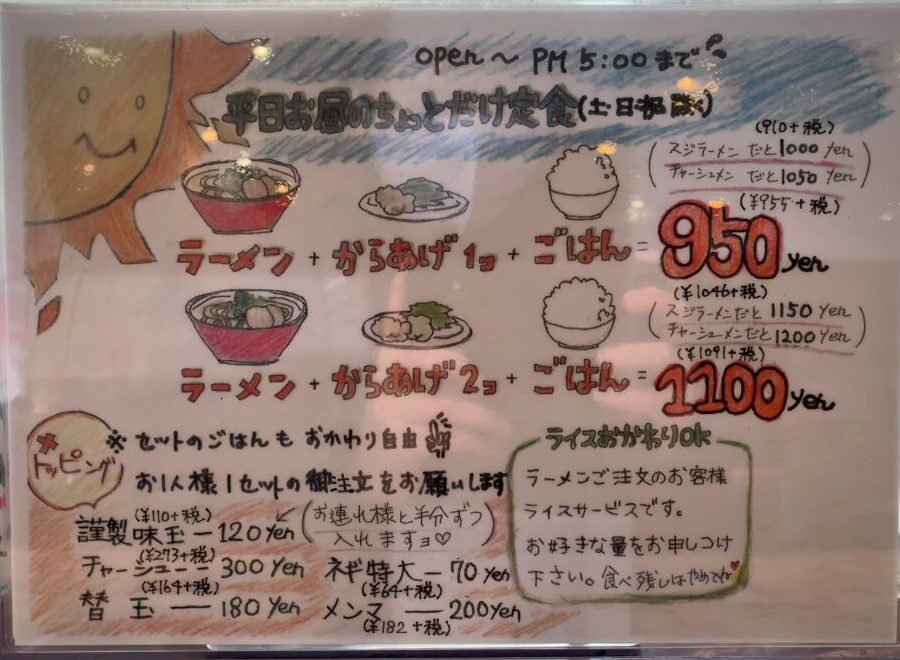 open～PM 5:00まで
平日お昼のちょっとだけ定食(土・日・祝除く)
(910+税)
(スジラーメンだと1000yen
チャーシュメンだと1050yen)
(¥955+税)
ラーメン+からあげ1コ+ごはん=950yen
(¥1046+税)
(スジラーメンだと1150yen
チャーシューメンだと1200yen)
(¥1091+税)
ラーメン+からあげ2コ+ごはん=1100yen
トッピング
※セットのごはんもおかわり自由
お1人様1セットの御注文をお願いします
(¥110+税)
謹製味玉ー120yen
(お連れ様と半分ずつ
入れますョ♡)
(¥273+税)
チャーシューー300yen
ネギ特大ー70yen
(¥164+税)
(¥64+税)
替玉ー180yen
メンマー200yen
(¥182+税)
ライスおかわりOK
ラーメンご注文のお客様
ライスサービスです。
お好きな量をお申しつけ
下さい。食べ残しはやめてね♥